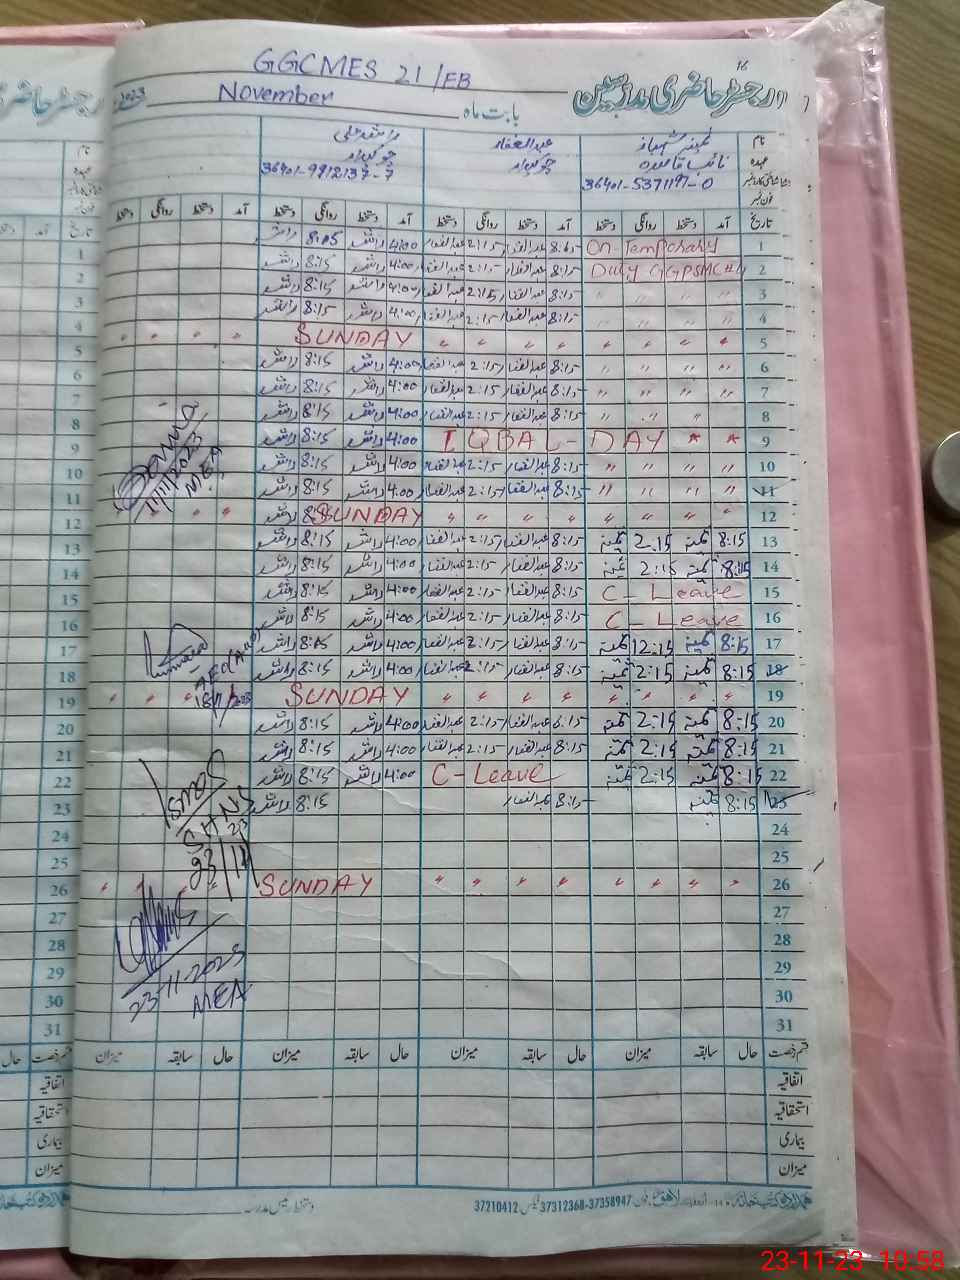 GGCMES 21/FB
رجسٹر حاضری مدرسین 16
2023 November بابت ماہ
نام ثمینہ شہباز عبدالغفار راشد علی
عہدہ نائب قاصدہ چوکیدار چوکیدار
شناختی کارڈ نمبر 36401-5371197-0 36401-9912137-7
فون نمبر
تاریخ آمد دستخط روانگی دستخط آمد دستخط روانگی دستخط آمد دستخط روانگی دستخط آمد دستخط روانگی دستخط
1 On Temporary 8:15 عبدالغفار 2:15 عبدالغفار 4:00 راشد 8:15 راشد
2 Duty GGPSMC# 8:15 عبدالغفار 2:15 عبدالغفار 4:00 راشد 8:15 راشد
3 " " " " 8:15 عبدالغفار 2:15 عبدالغفار 4:00 راشد 8:15 راشد
4 " " " " 8:15 عبدالغفار 2:15 عبدالغفار 4:00 راشد 8:15 راشد
5 " " " " " " " " SUNDAY " " " "
6 " " " " 8:15 عبدالغفار 2:15 عبدالغفار 4:00 راشد 8:15 راشد
7 " " " " 8:15 عبدالغفار 2:15 عبدالغفار 4:00 راشد 8:15 راشد
8 " " " 8:15 عبدالغفار 2:15 عبدالغفار 4:00 راشد 8:15 راشد
9 IQBAL-DAY 4:00 راشد 8:15 راشد
10 " " " " 8:15 عبدالغفار 2:15 عبدالغفار 4:00 راشد 8:15 راشد
11 " " " " 8:15 عبدالغفار 2:15 عبدالغفار 4:00 راشد 8:15 راشد
12 " " " " " " " " SUNDAY 8:15 راشد " "
13 8:15 ثمینہ 2:15 ثمینہ 8:15 عبدالغفار 2:15 عبدالغفار 4:00 راشد 8:15 راشد
14 8:15 ثمینہ 2:15 ثمینہ 8:15 عبدالغفار 2:15 عبدالغفار 4:00 راشد 8:15 راشد
15 C-Leave 8:15 عبدالغفار 2:15 عبدالغفار 4:00 راشد 8:15 راشد
16 C-Leave 8:15 عبدالغفار 2:15 عبدالغفار 4:00 راشد 8:15 راشد
17 8:15 ثمینہ 12:15 ثمینہ 8:15 عبدالغفار 2:15 عبدالغفار 4:00 راشد 8:15 راشد
18 8:15 ثمینہ 2:15 ثمینہ 8:15 عبدالغفار 2:15 عبدالغفار 4:00 راشد 8:15 راشد
19 " " " " " " " " SUNDAY " " "
20 8:15 ثمینہ 2:15 ثمینہ 8:15 عبدالغفار 2:15 عبدالغفار 4:00 راشد 8:15 راشد
21 8:15 ثمینہ 2:15 ثمینہ 8:15 عبدالغفار 2:15 عبدالغفار 4:00 راشد 8:15 راشد
22 8:15 ثمینہ 2:15 ثمینہ C-Leave 4:00 راشد 8:15 راشد
23 8:15 ثمینہ 8:15 عبدالغفار 8:15 راشد
24
25
26 " " " " " " " " SUNDAY " "
27
28
29
30
31
11/11/2023
MEA
SHNS
23/11
23-11-2023
MEA
قسم رخصت حال سابقہ میزان حال سابقہ میزان حال سابقہ میزان حال سابقہ میزان
اتفاقیہ
استحقاقیہ
بیماری
میزان
دستخط ہیں مدرسہ
لاہور فون 37358947-37312368 فیکس 37210412
تاریخ
1
2
3
4
5
6
7
8
9
10
11
12
13
14
15
16
17
18
19
20
21
22
23
24
25
26
27
28
29
30
31
قسم رخصت حال
اتفاقیہ
استحقاقیہ
بیماری
میزان
23-11-23 10:58